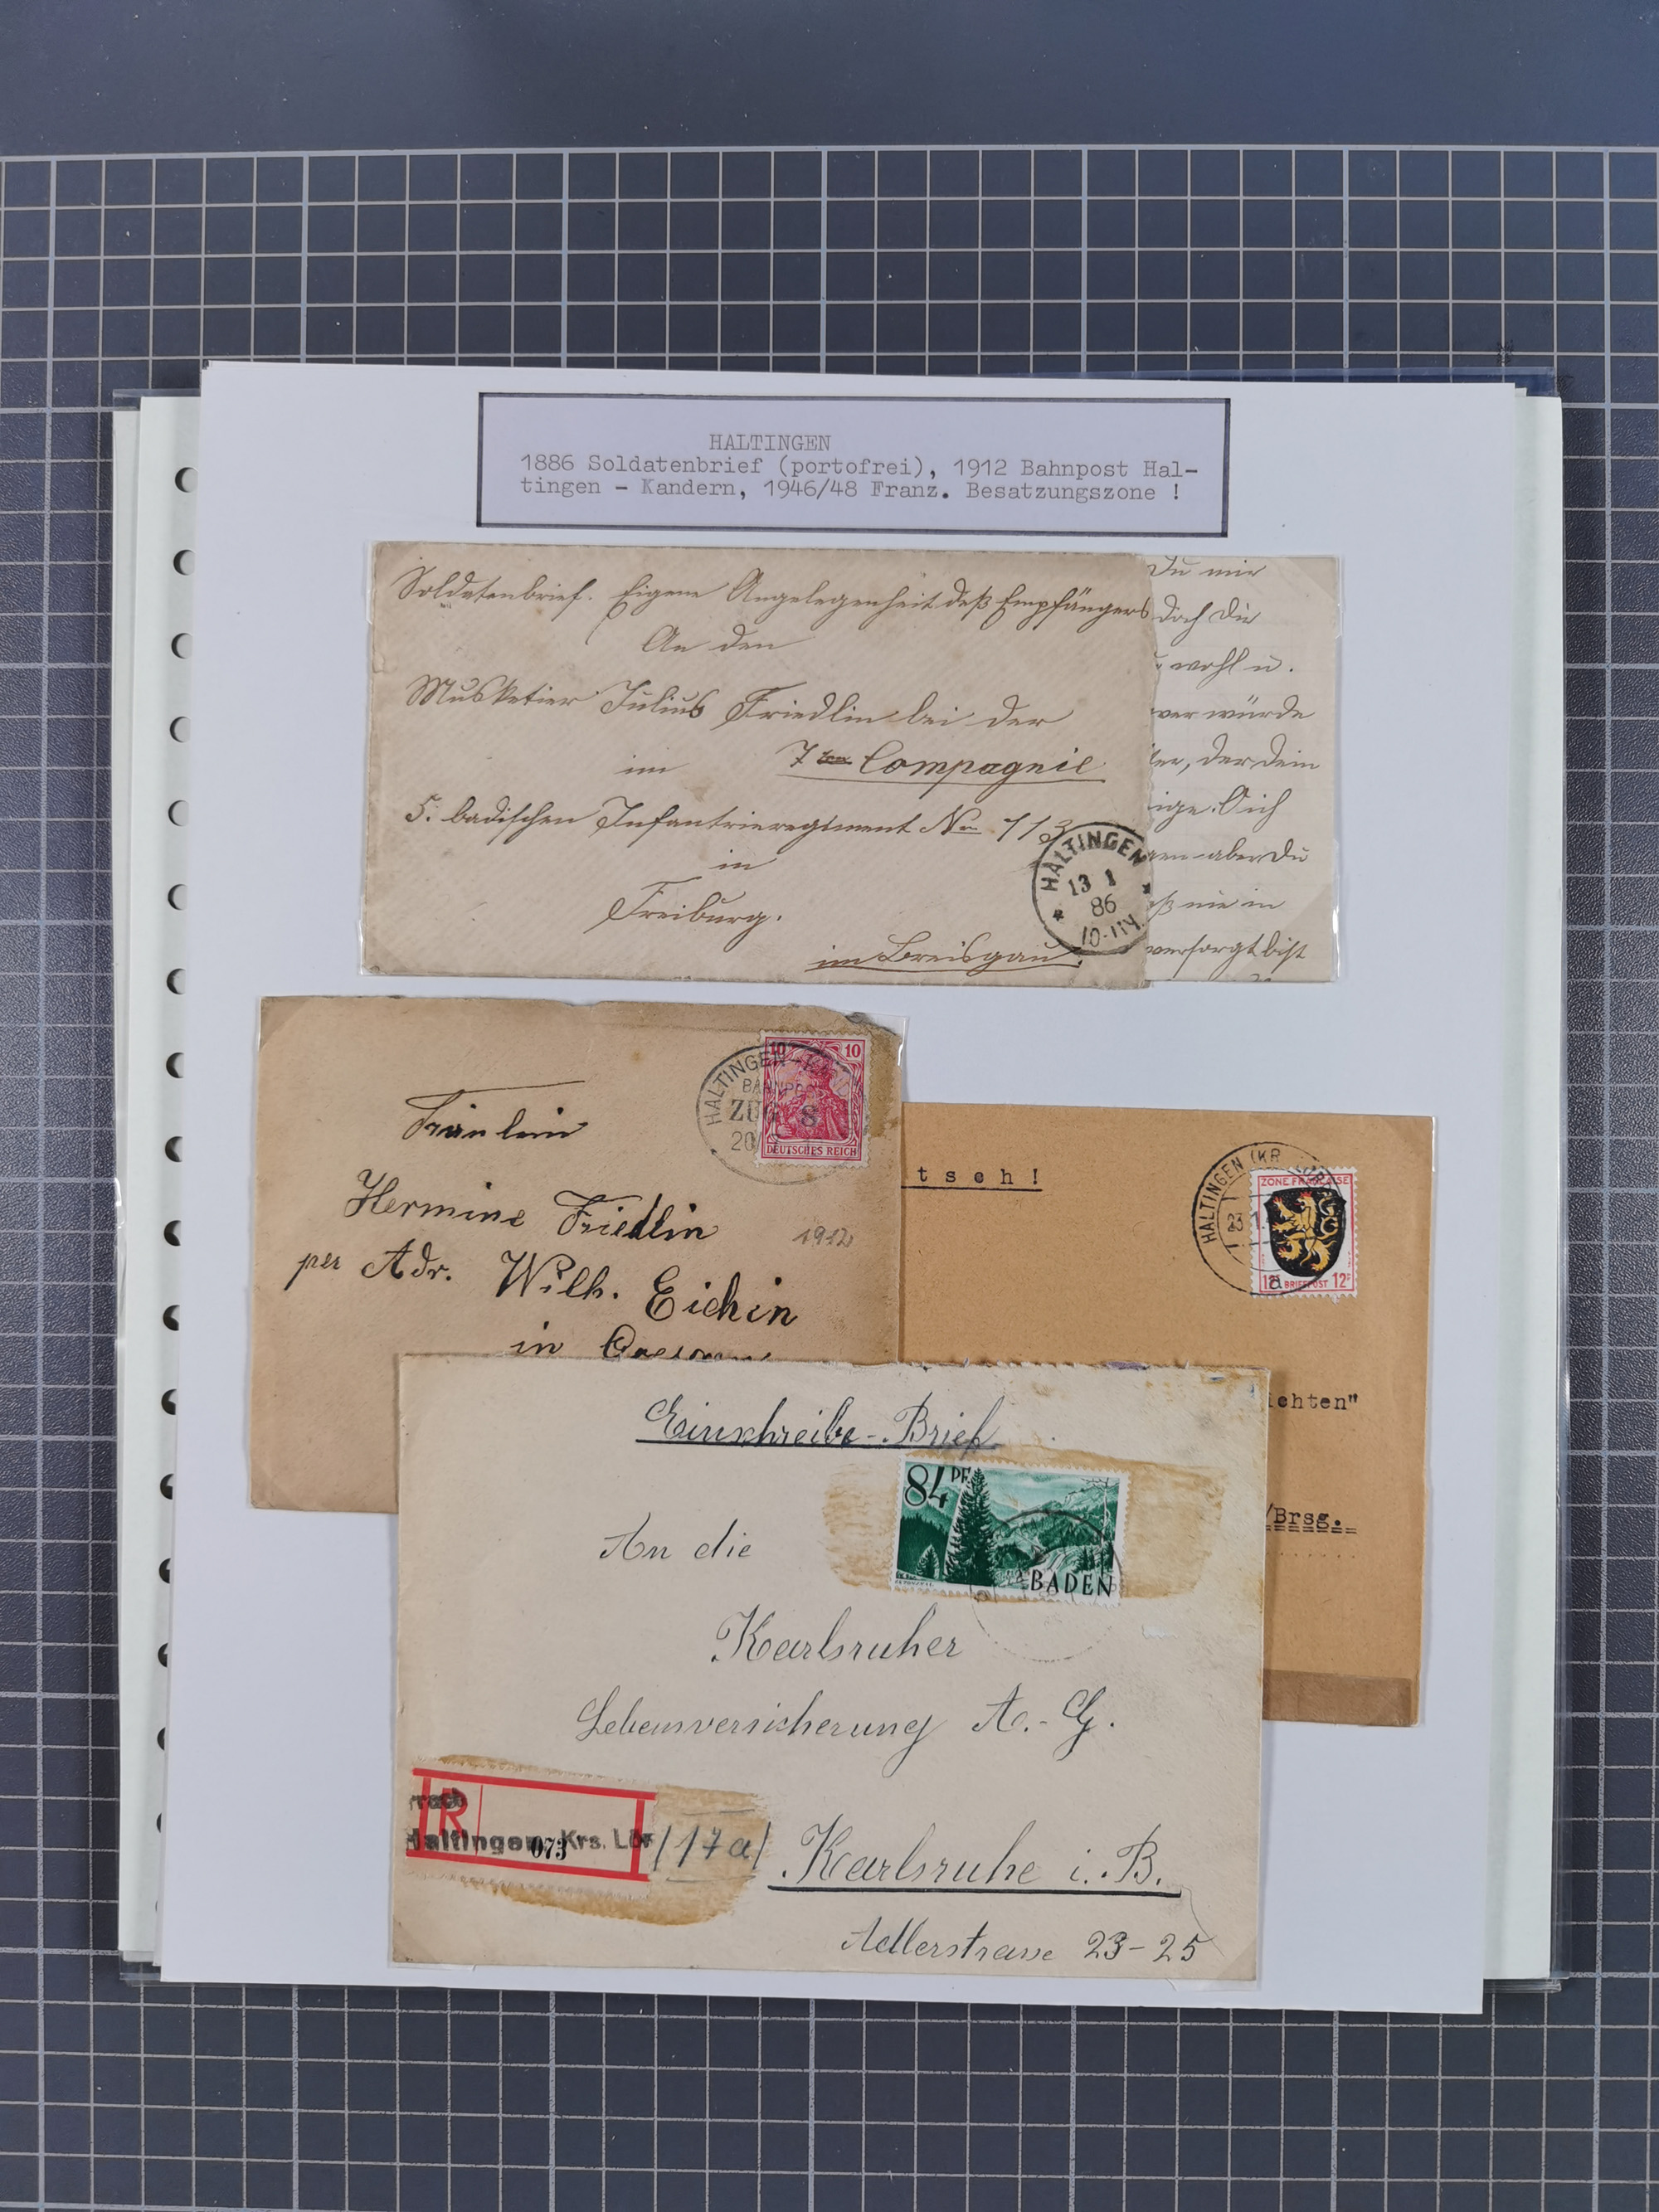 HALTINGEN
1886 Soldatenbrief (portofrei), 1912 Bahnpost Hal-
tingen - Kandern, 1946/48 Franz. Besatzungszone !
Soldatenbrief. Eigene Angelegenheit deß Empfängers
An den
Musketier Julius Friedlin bei der
7ten Compagnie
im
5. badischen Infantrieregiment No 113
in
Freiburg.
im Breisgau.
HALTINGEN
13 1
86
10-11V.
Du mir
doch die
wohl u.
wer würde
der dein
aber du
nie in
versorgt bist
Fräulein
Hermine Friedlin
per Adr. Wilh. Eichin
in
1912
HALTINGEN
ZUG 8
20
10 10
DEUTSCHES REICH
tsch!
HALTINGEN (KR
23
a
ZONE FRANÇAISE
12 BRIEFPOST 12
ichten"
/Brsg.
Einschreibe-Brief
84 PF
BADEN
An die
Karlsruher
Lebensversicherung A.-G.
(17a) Karlsruhe i. B.
Adlerstrasse 23-25
R
rrach
Haltingen, Krs. Lör
073